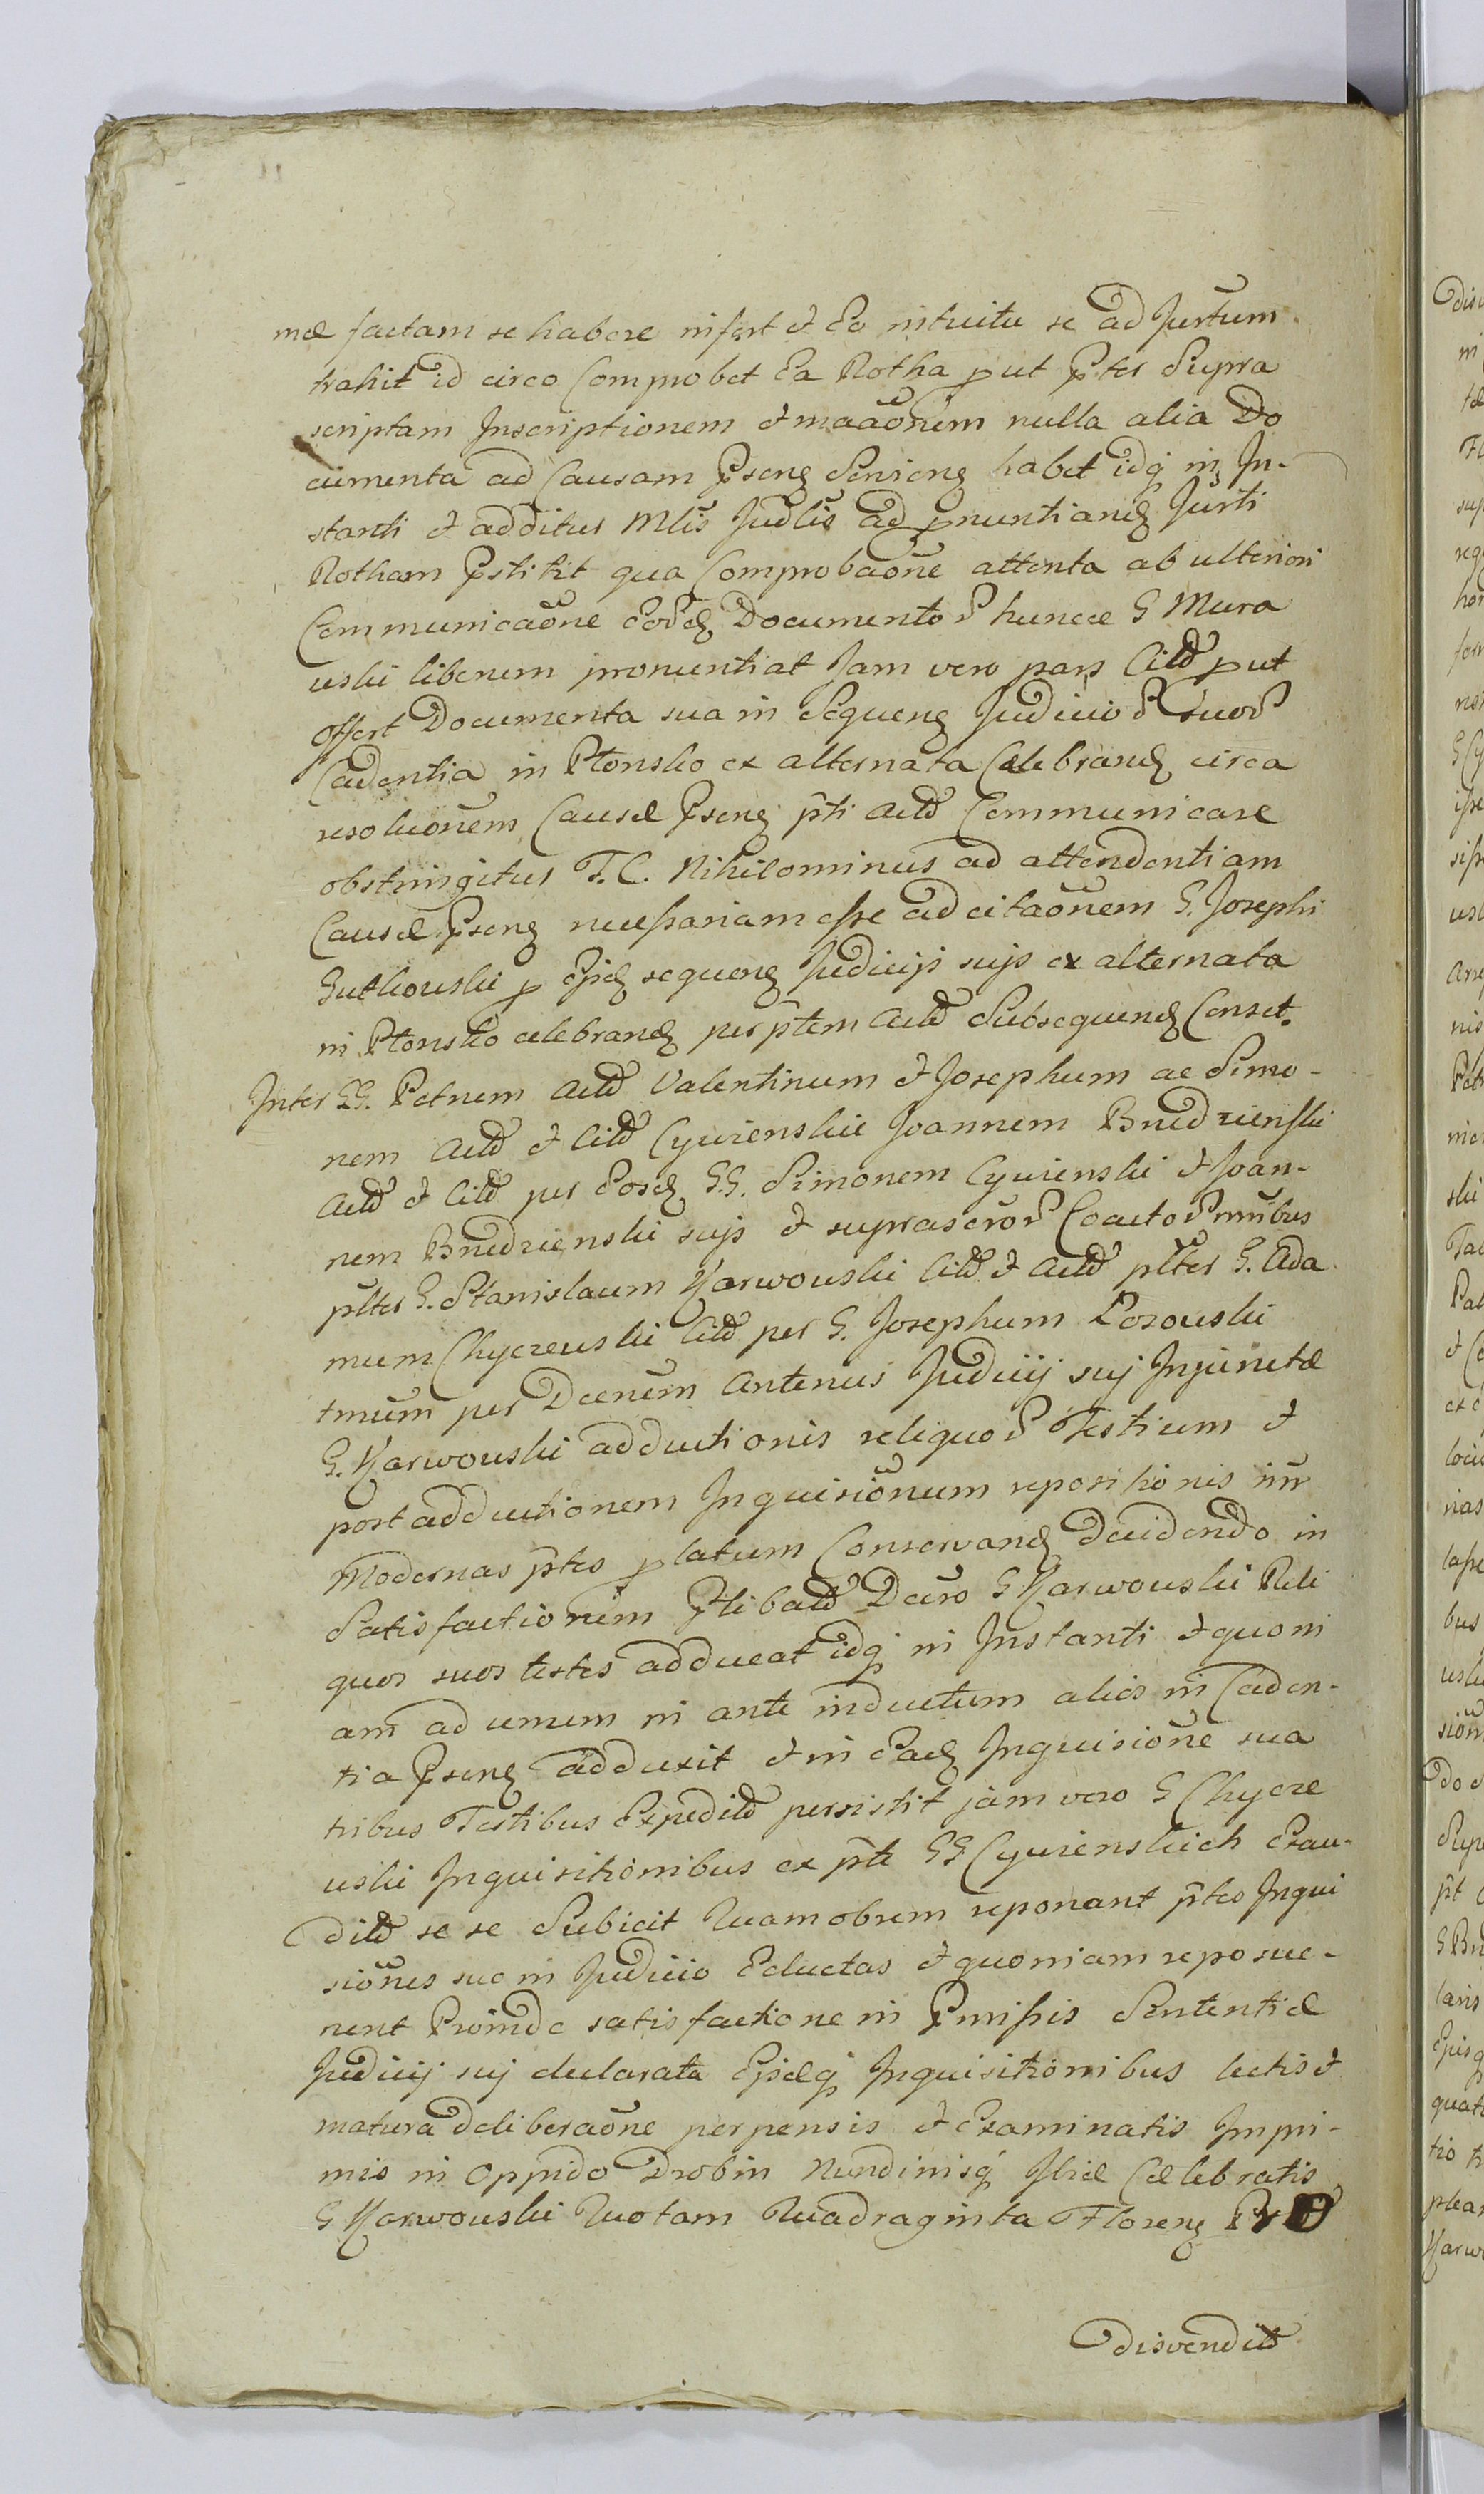 mæ factam se habere infert et Eo intuitu se ad Jurtum
trahit id circo Comprobet Ea Rotha put Pter Supra
scriptam Inscriptionem et maãonem nulla alia Do
cumenta ad Causam Psenς Servienς habet idq in In-
stanti et additus Mlis Judlis ad pnuntiandς Jurti
Rotham Pstitit qua Comprobaone attenta ab ulteriori
Communicaone eordς Documentor huncce G Mura
uski liberum pronuntiat Jam vero pars Citd put
offert Documenta sua in Sequenς Judicior suor
Cadentia in Płonsko ex alternata Celebrandς circa
resoluonem Causæ Psenς pti Actd Communicare
obstringitur T.C. Nihilominus ad attendentiam
Causæ Psenς necessariam esse adcitaonem G. Josephi
Gutkouski p Ejsdς sequenς Judicijs sujs ex alternata
in Płonsko celebrandς per ptem Actd Subsequendς Censet.
Inter GG. Petrum Actd Valentinum et Josephum ac Simo-
nem Actd et Citd Cywienskie Joannem Brudzienski
Actd et Citd per Eosdς G.G. Simonem Cywienski et Joan-
nem Brudzienski sujs et suprascror Coactor nnibus
plter G. Stanislaum Karwouski Citd et Actd plter G. Ada
mum Chyczeuski Citd per G. Josephum Łosouski
tmum per Dcenum Antenus Judicij suj Injunctæ
G. Karwouski adductionis reliquor Testium et
post adductionem Inquisionum repositionis inr
Modernas ptes platum Conservandς Decidendo in
Satisfactionem Plibatd Dcro G Karwouski Reli
quos suos testes adducat idq in Instanti et quoni
am ad unum in ante inductum alios in Caden-
tia Psenς adduxit et in Eadς Inquisione sua
tribus Testibus Expeditd persistit jam vero G Chycze
uski Inquisitionibus ex pte GG Cywienskich Exau-
ditd se se Subicit Quamobrem reponant ptes Inqui
siones suo in Judicio Eductas et quoniam reposue-
runt Proinde satisfactione in Pmissis Sententiæ
Judicij suj declarata Ejsdς Inquisitionibus lectis et
matura deliberaone perpensis et Examinatis Inpri-
mis in Oppido Drobin Nundinisq Ibid Celebratis
G Karwouski Quotam Quadraginta Florenς Pr
disvendit